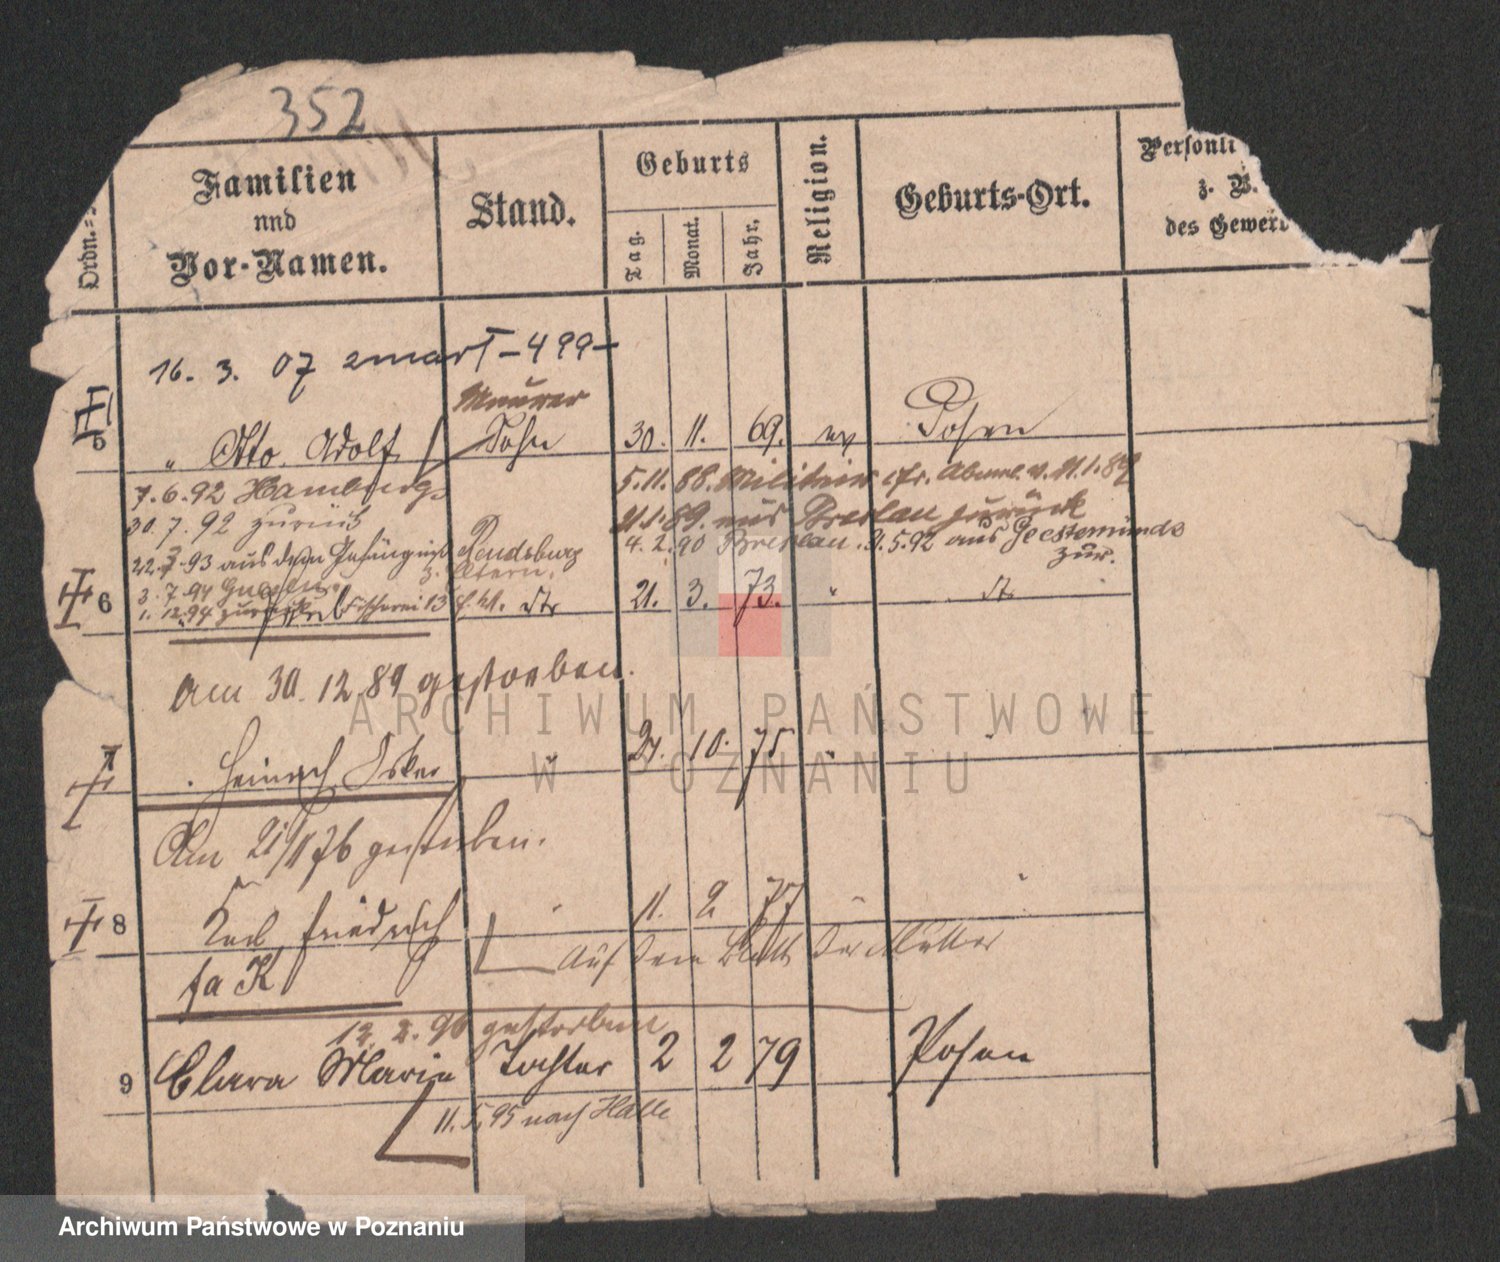 352
Familien
und
Vor-Namen.
Ordn.=
Stand.
Geburts
Tag.
Monat.
Jahr.
Religion.
Geburts-Ort.
Persönli
z. B.
des Gewerb
16. 3. 07 zmarł - 499 -
Maurer
5
" Otto Adolf Sohn 30. 11. 69. ev Posen
7. 6. 92 Hamburg
5. 11. 88. Militair v. 21. 1. 89
30. 7. 92 zurück
21. 1. 89. aus Breslau zurück
22. 7. 93 aus dem Gefängniß Rendsburg
4. 2. 90 Breslau. 9. 5. 92 aus Geestemünde
zur.
z. Eltern.
3. 7. 94
1. 12. 94 zurück Fischerei 13
6 21. 3. 73. " dto
am 30. 12. 89 gestorben.
7 Heinrich Oskar " 21. 10. 75 " "
Am 21/11 76 gestorben.
8 Karl Friedrich " 11. 2 77 " "
Auf dem Blatt der Mutter
fa K
12. 2. 96 gestorben
9 Clara Marie Tochter 2 2 79 Posen
11. 5. 95 nach Halle
ARCHIWUM PAŃSTWOWE
W POZNANIU
Archiwum Państwowe w Poznaniu